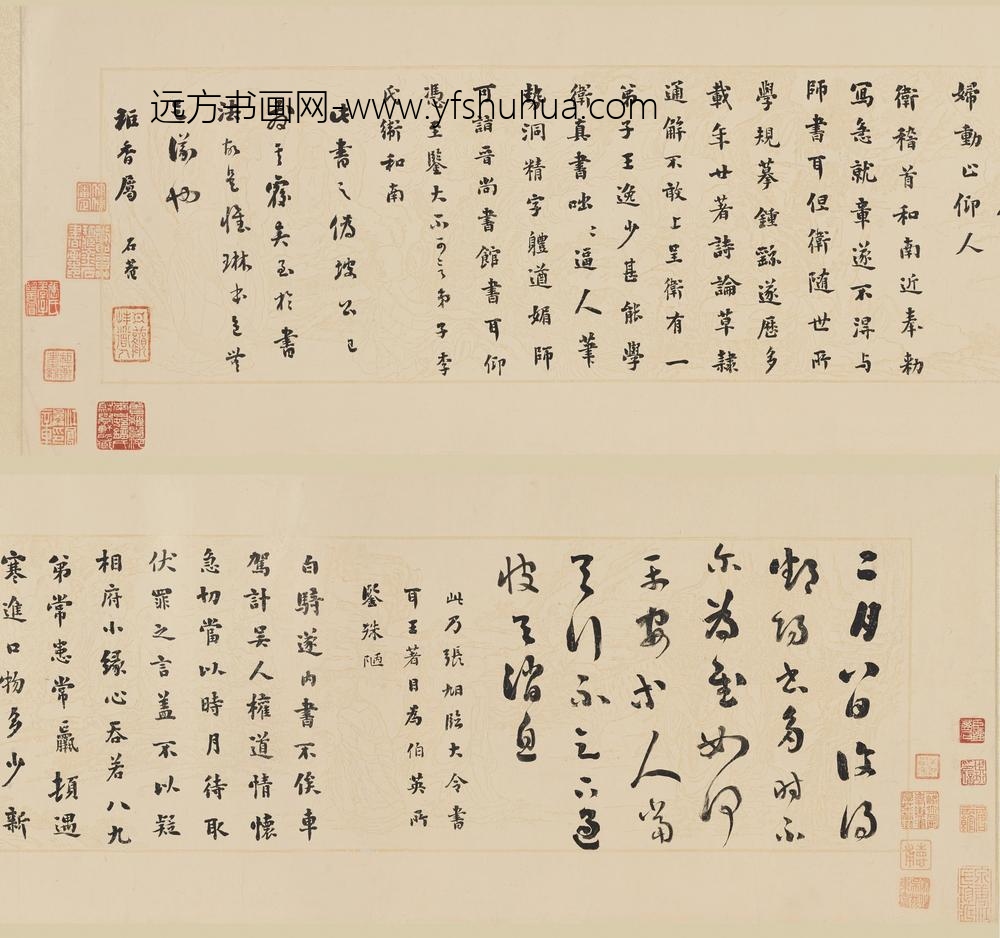 远方书画网-www.yfshuhua.com
婦動止仰人
衛稽首和南近奉勑
寫急就章遂不淂与
師書耳但衛随世所
學規摹鍾繇遂歷多
載年廿著詩論草隸
通解不敢上呈衛有一
弟子王逸少甚能學
衛真書咄〻逼人筆
勢洞精字軆遒媚師
可詣晋尚書館書耳仰
憑至鑒大不可言弟子李
氏衛和南
此書之偽坡公已
審矣至於書
石菴
二月八日復得
鄱陽書多時不
尔為慰如何
平安等人當
与行不足不過
彼与消息
此乃張旭臨大令書
耳王著目為伯英所
鑒殊陋
白騎遂内書不俟車
駕計吴人權道情懷
急切當以時月待取
伏罪之言蓋不以疑
相府小緣心吞若八九
弟常患常羸頓遇
寒進口物多少新